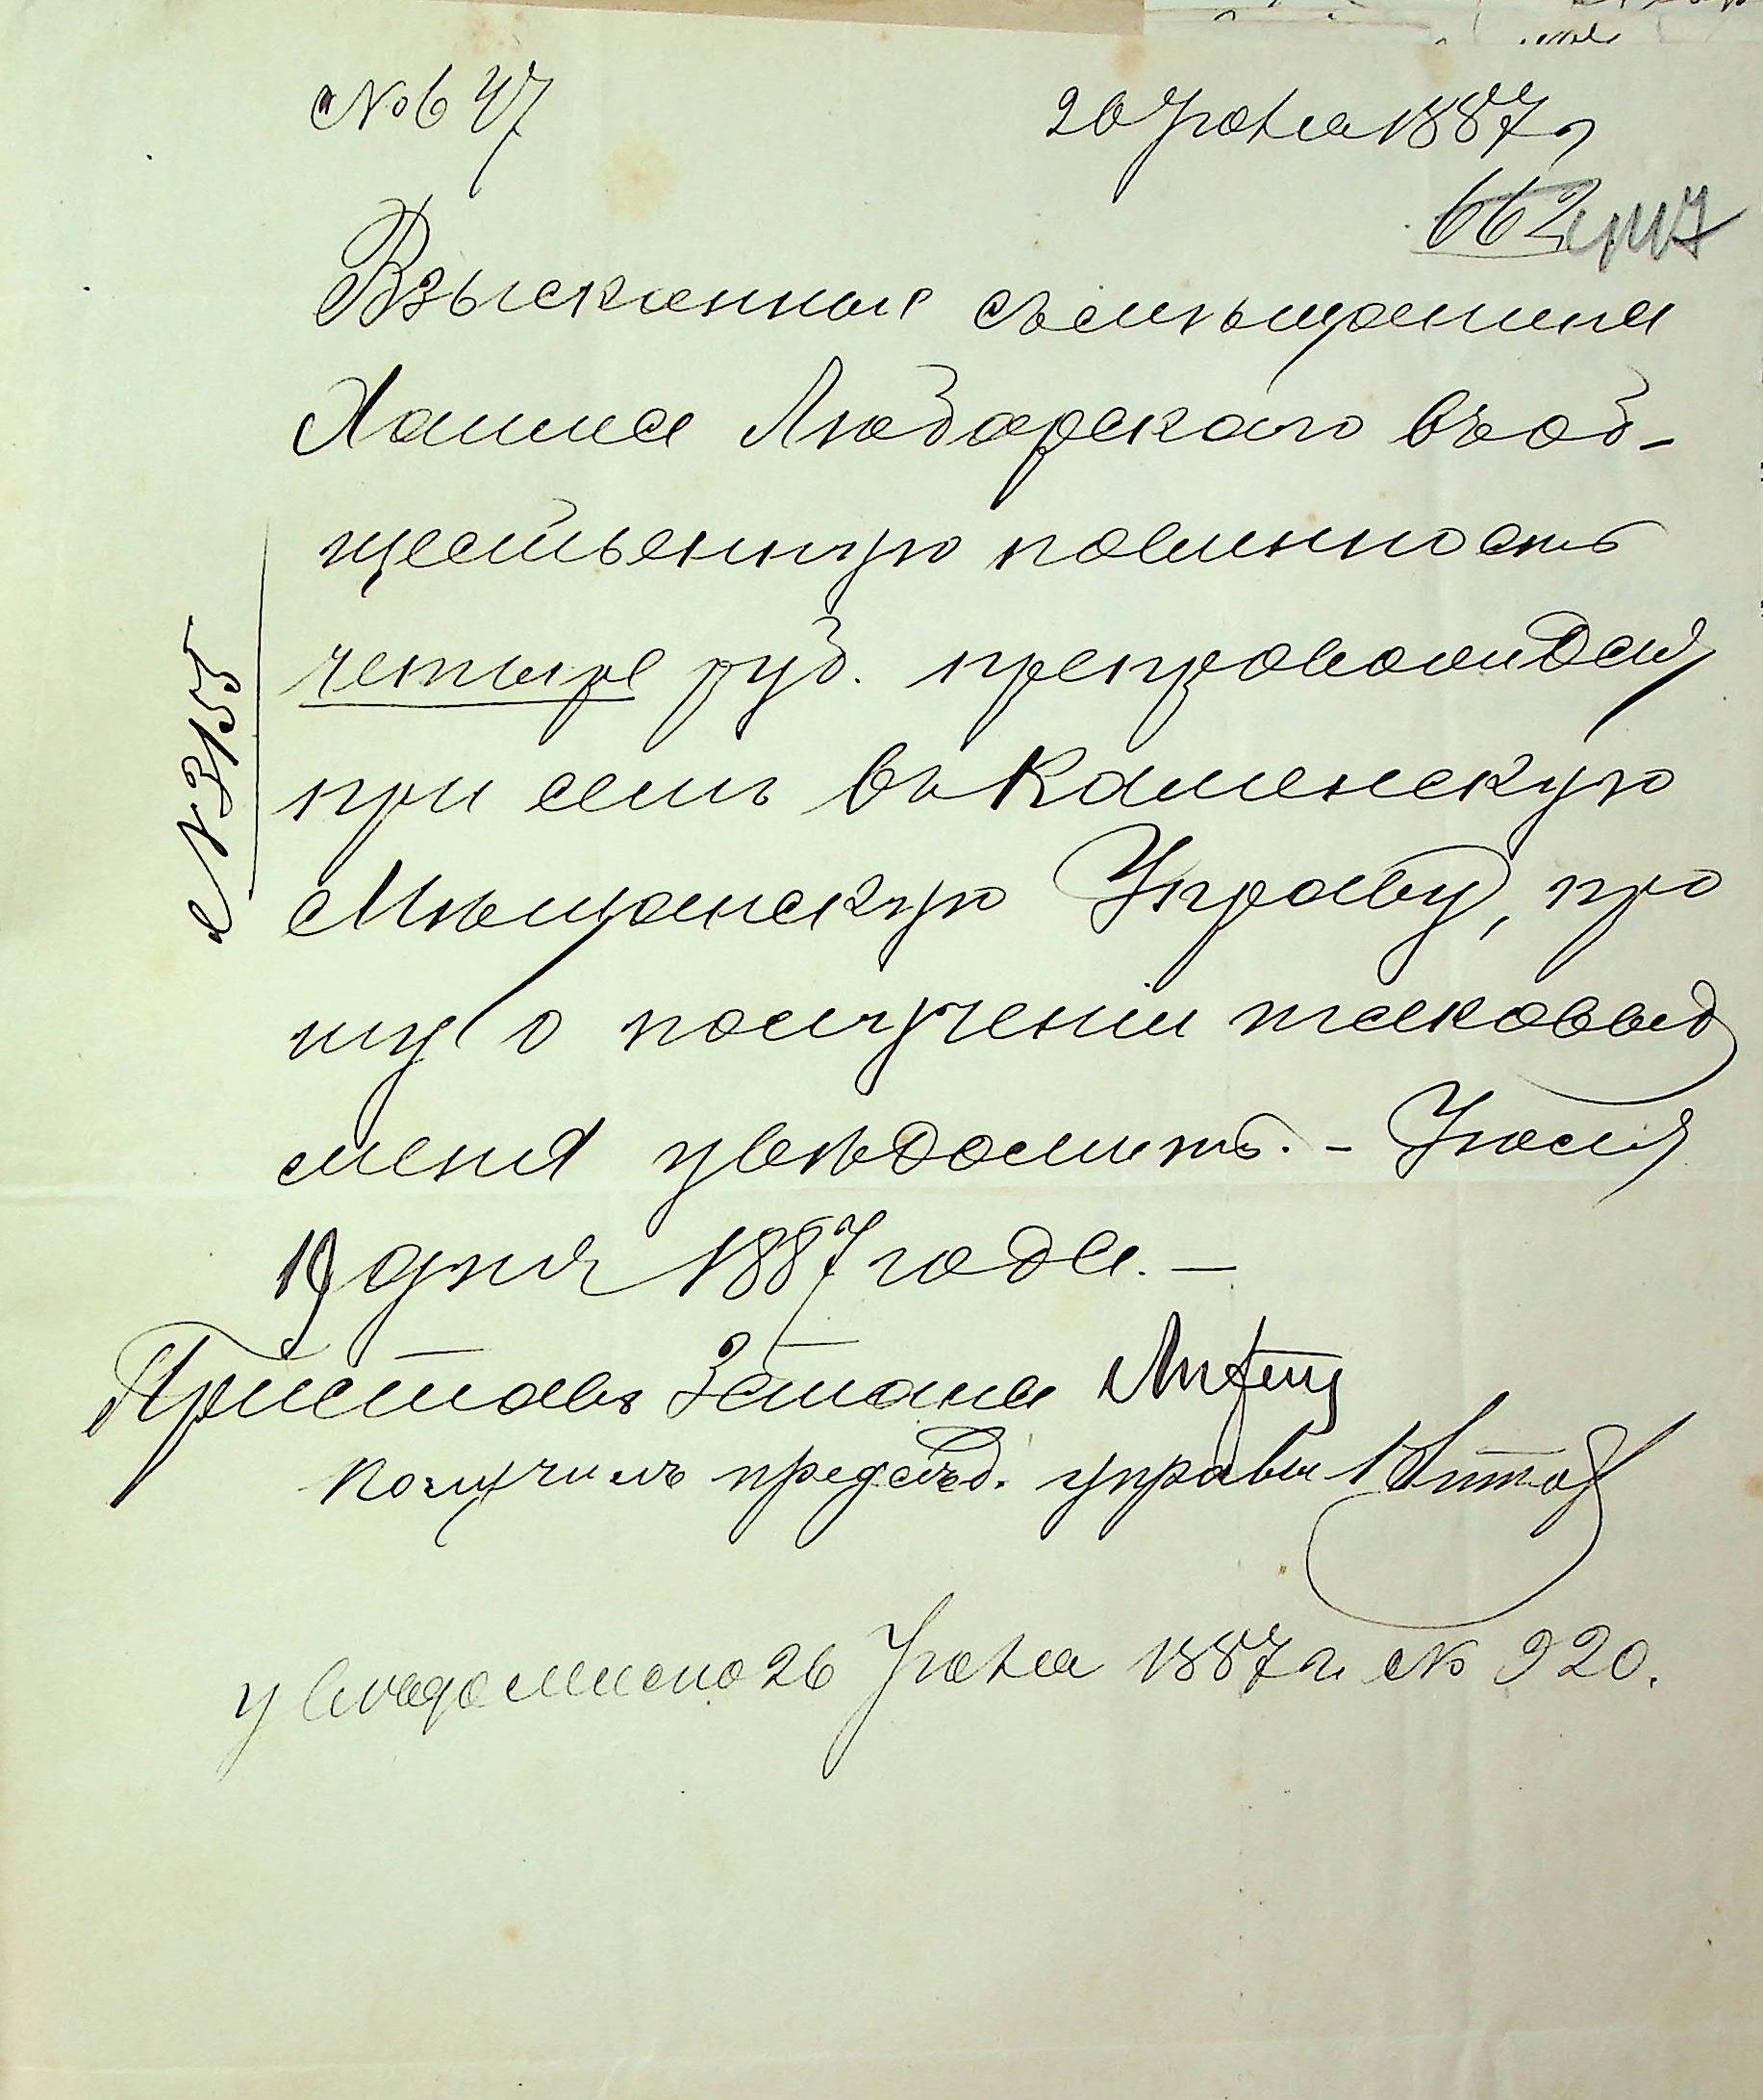 № 647
20 Іюня 1887 г
662
Взысканныя съ мѣщанина
Хаима Любарскаго въ об-
щественную повинность
четыре руб. препровождая
при семъ въ Каменскую
Мѣщанскую Управу, про
шу о полученіи таковыхъ
меня увѣдомить. - Іюня
19 дня 1887 года. —
Приставъ 3 стана
получилъ предсѣд. управы
увѣдомлено 26 Іюня 1887 г. № 920.
№ 3155